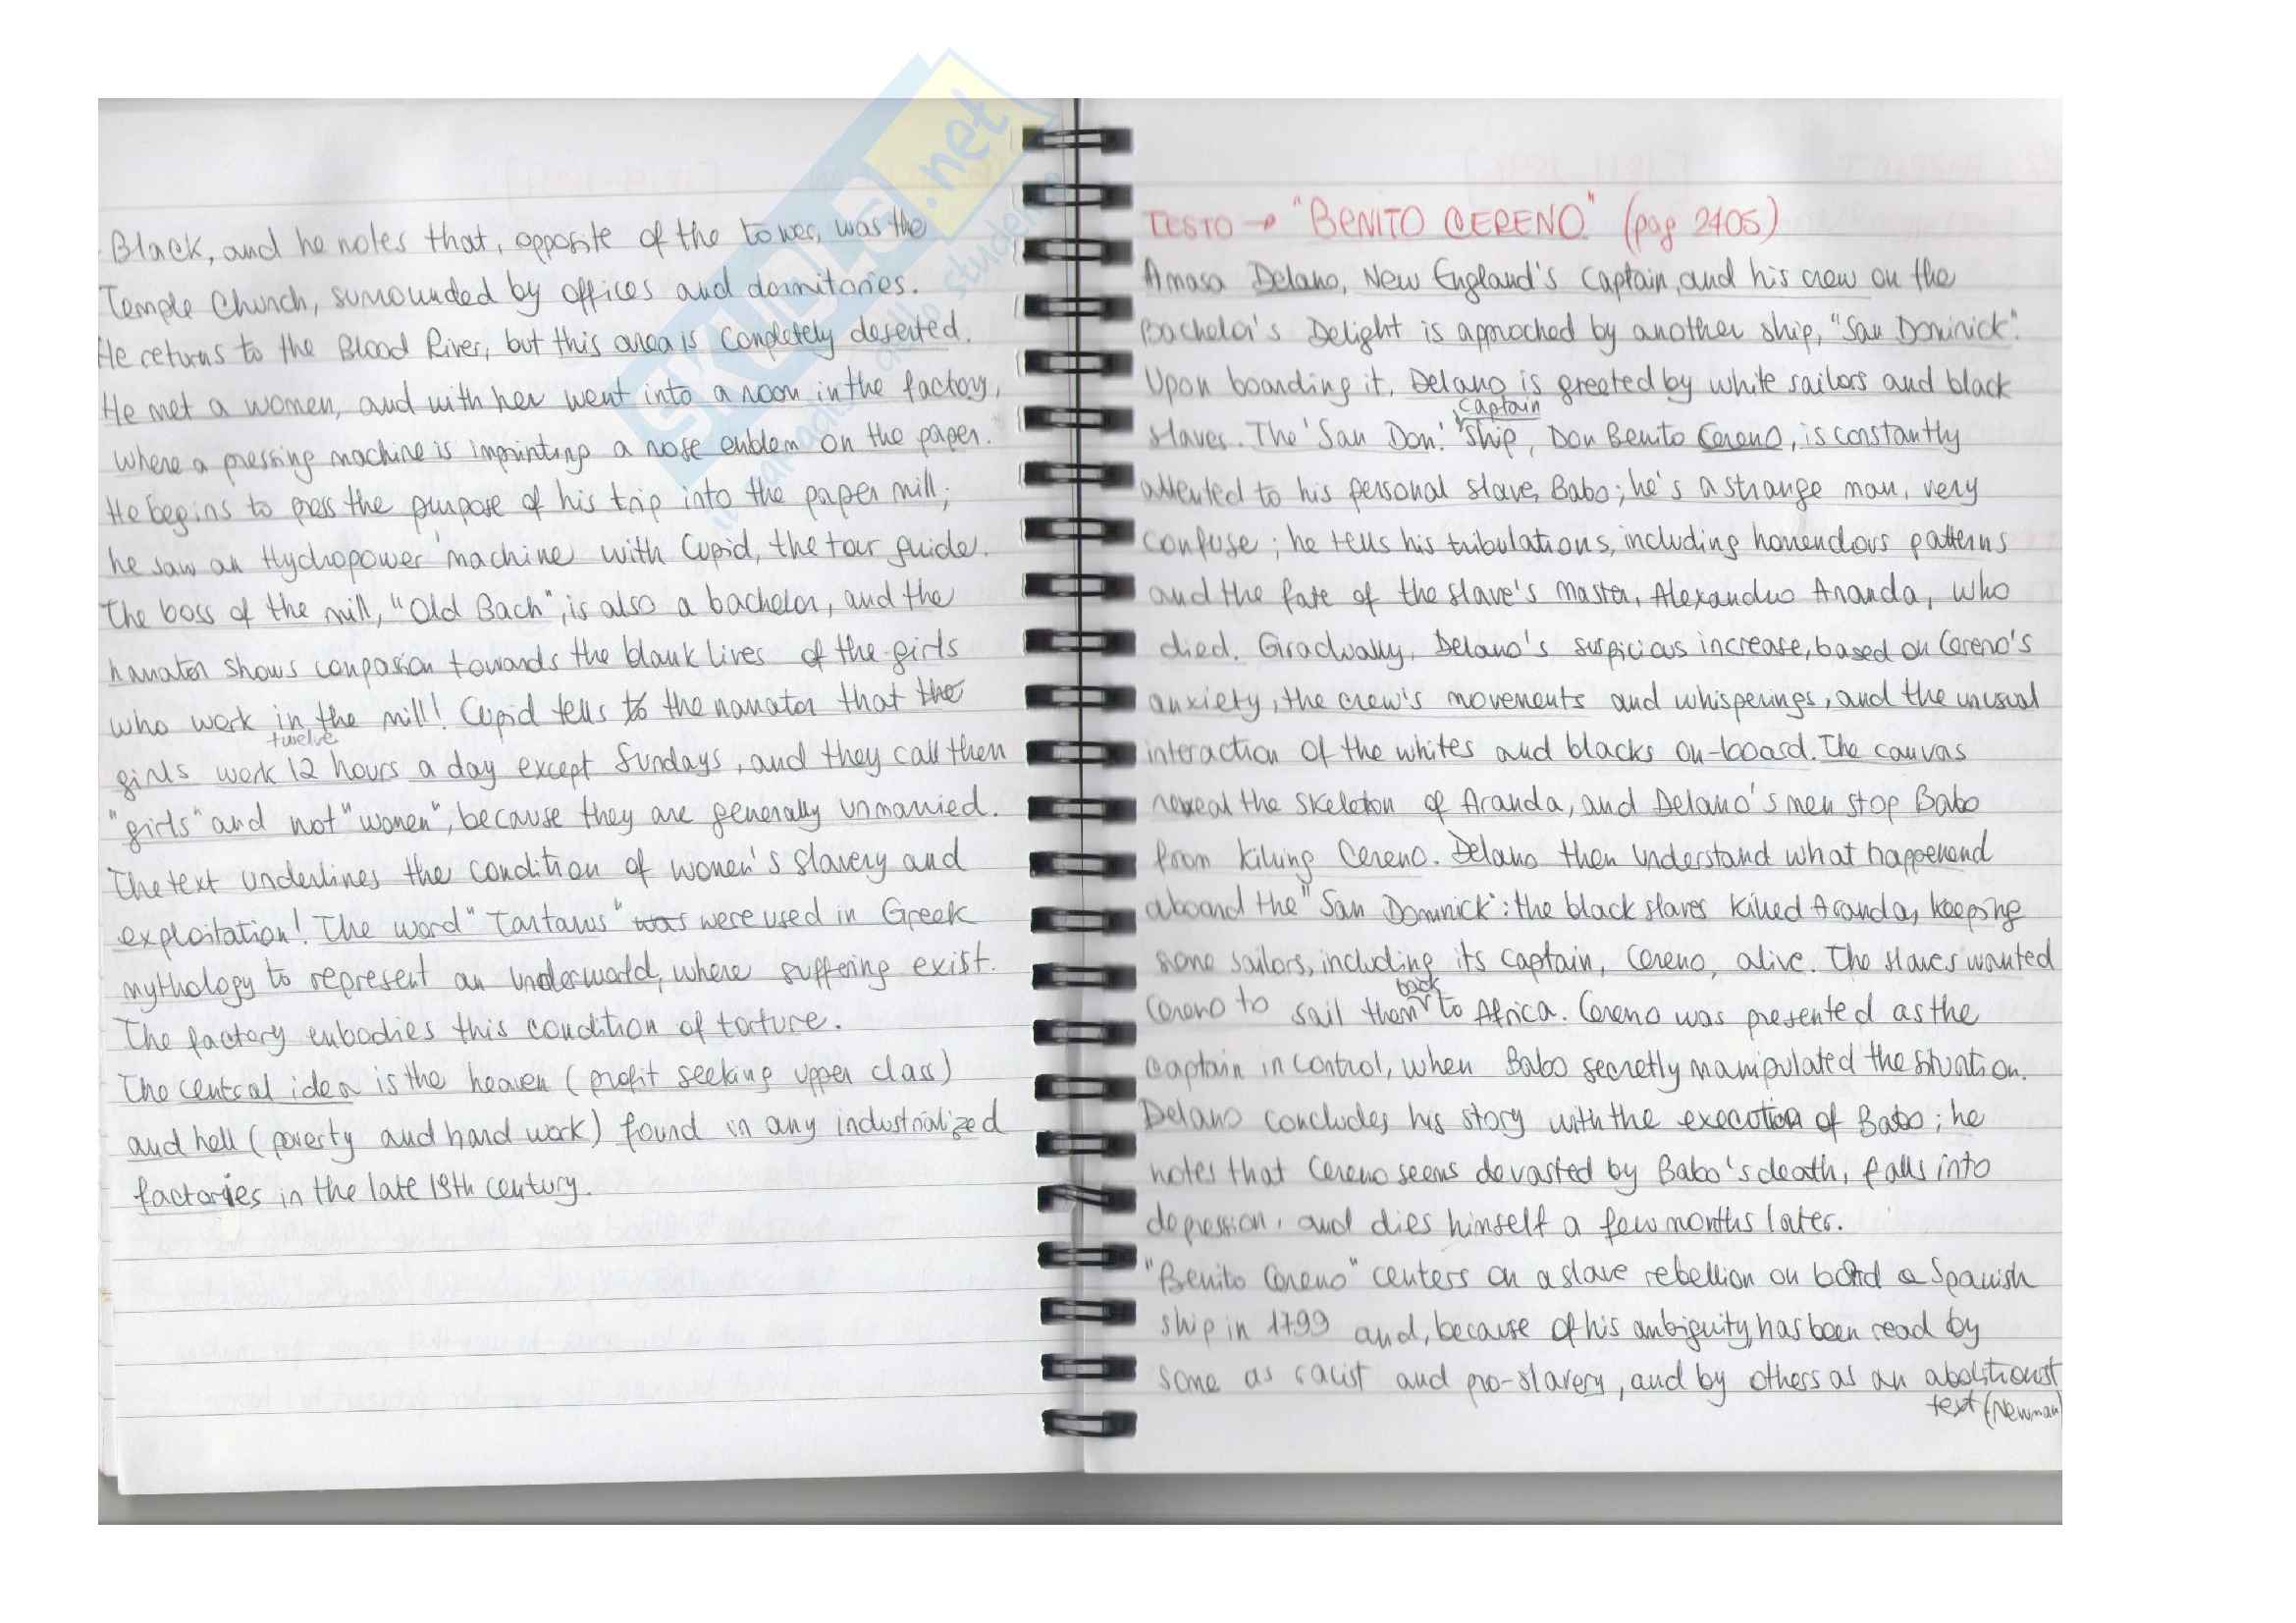 Black, and he notes that, opposite of the tower, was the
Temple Church, surrounded by offices and dormitories.
He returns to the Blood River, but this area is completely deserted.
He met a women, and with her went into a room in the factory,
where a pressing machine is imprinting a rose emblem on the paper.
He begins to press the purpose of his trip into the paper mill;
he saw an Hydropower machine with Cupid, the tour guide.
The boss of the mill, "Old Bach", is also a bachelor, and the
narrator shows conpasion towards the blank lives of the girls
who work in the mill! Cupid tells to the narrator that the
twelve
girls work 12 hours a day except Sundays, and they call them
"girls" and not "women", because they are generally unmarried.
The text underlines the condition of women's slavery and
exploitation! The word "Tartarus" was were used in Greek
mythology to represent an underworld, where suffering exist.
The factory embodies this condition of torture.
The central idea is the heaven (profit seeking upper class)
and hell (poverty and hard work) found in any industrialized
factories in the late 19th century.
TESTO → "BENITO CERENO" (pag 2405)
Amasa Delano, New England's Captain, and his crew on the
Bachelor's Delight is approched by another ship, "San Dominick".
Upon boarding it, Delano is greeted by white sailors and black
captain
slaves. The 'San Don.' ship, Don Benito Cereno, is constantly
attented to his personal slave, Babo; he's a strange man, very
confuse; he tells his tribulations, including horrendous patterns
and the fate of the slave's master, Alexandro Aranda, who
died. Gradually, Delano's suspicious increase, based on Cereno's
anxiety, the crew's movements and whisperings, and the unusual
interaction of the whites and blacks on-board. The canvas
reveal the skeleton of Aranda, and Delano's men stop Babo
from killing Cereno. Delano then understand what happenend
aboard the "San Dominick": the black slaves killed Aranda, keeping
some sailors, including its captain, Cereno, alive. The slaves wanted
back
Cereno to sail them to Africa. Cereno was presented as the
captain in control, when Babo secretly manipulated the situation.
Delano concludes his story with the execution of Babo; he
notes that Cereno seems devasted by Babo's death, falls into
depression, and dies himself a few months later.
"Benito Cereno" centers on a slave rebellion on board a Spanish
ship in 1799 and, because of his ambiguity, has been read by
some as racist and pro-slavery, and by others as an abolitionist
text (Newman)
SKUOLA.net